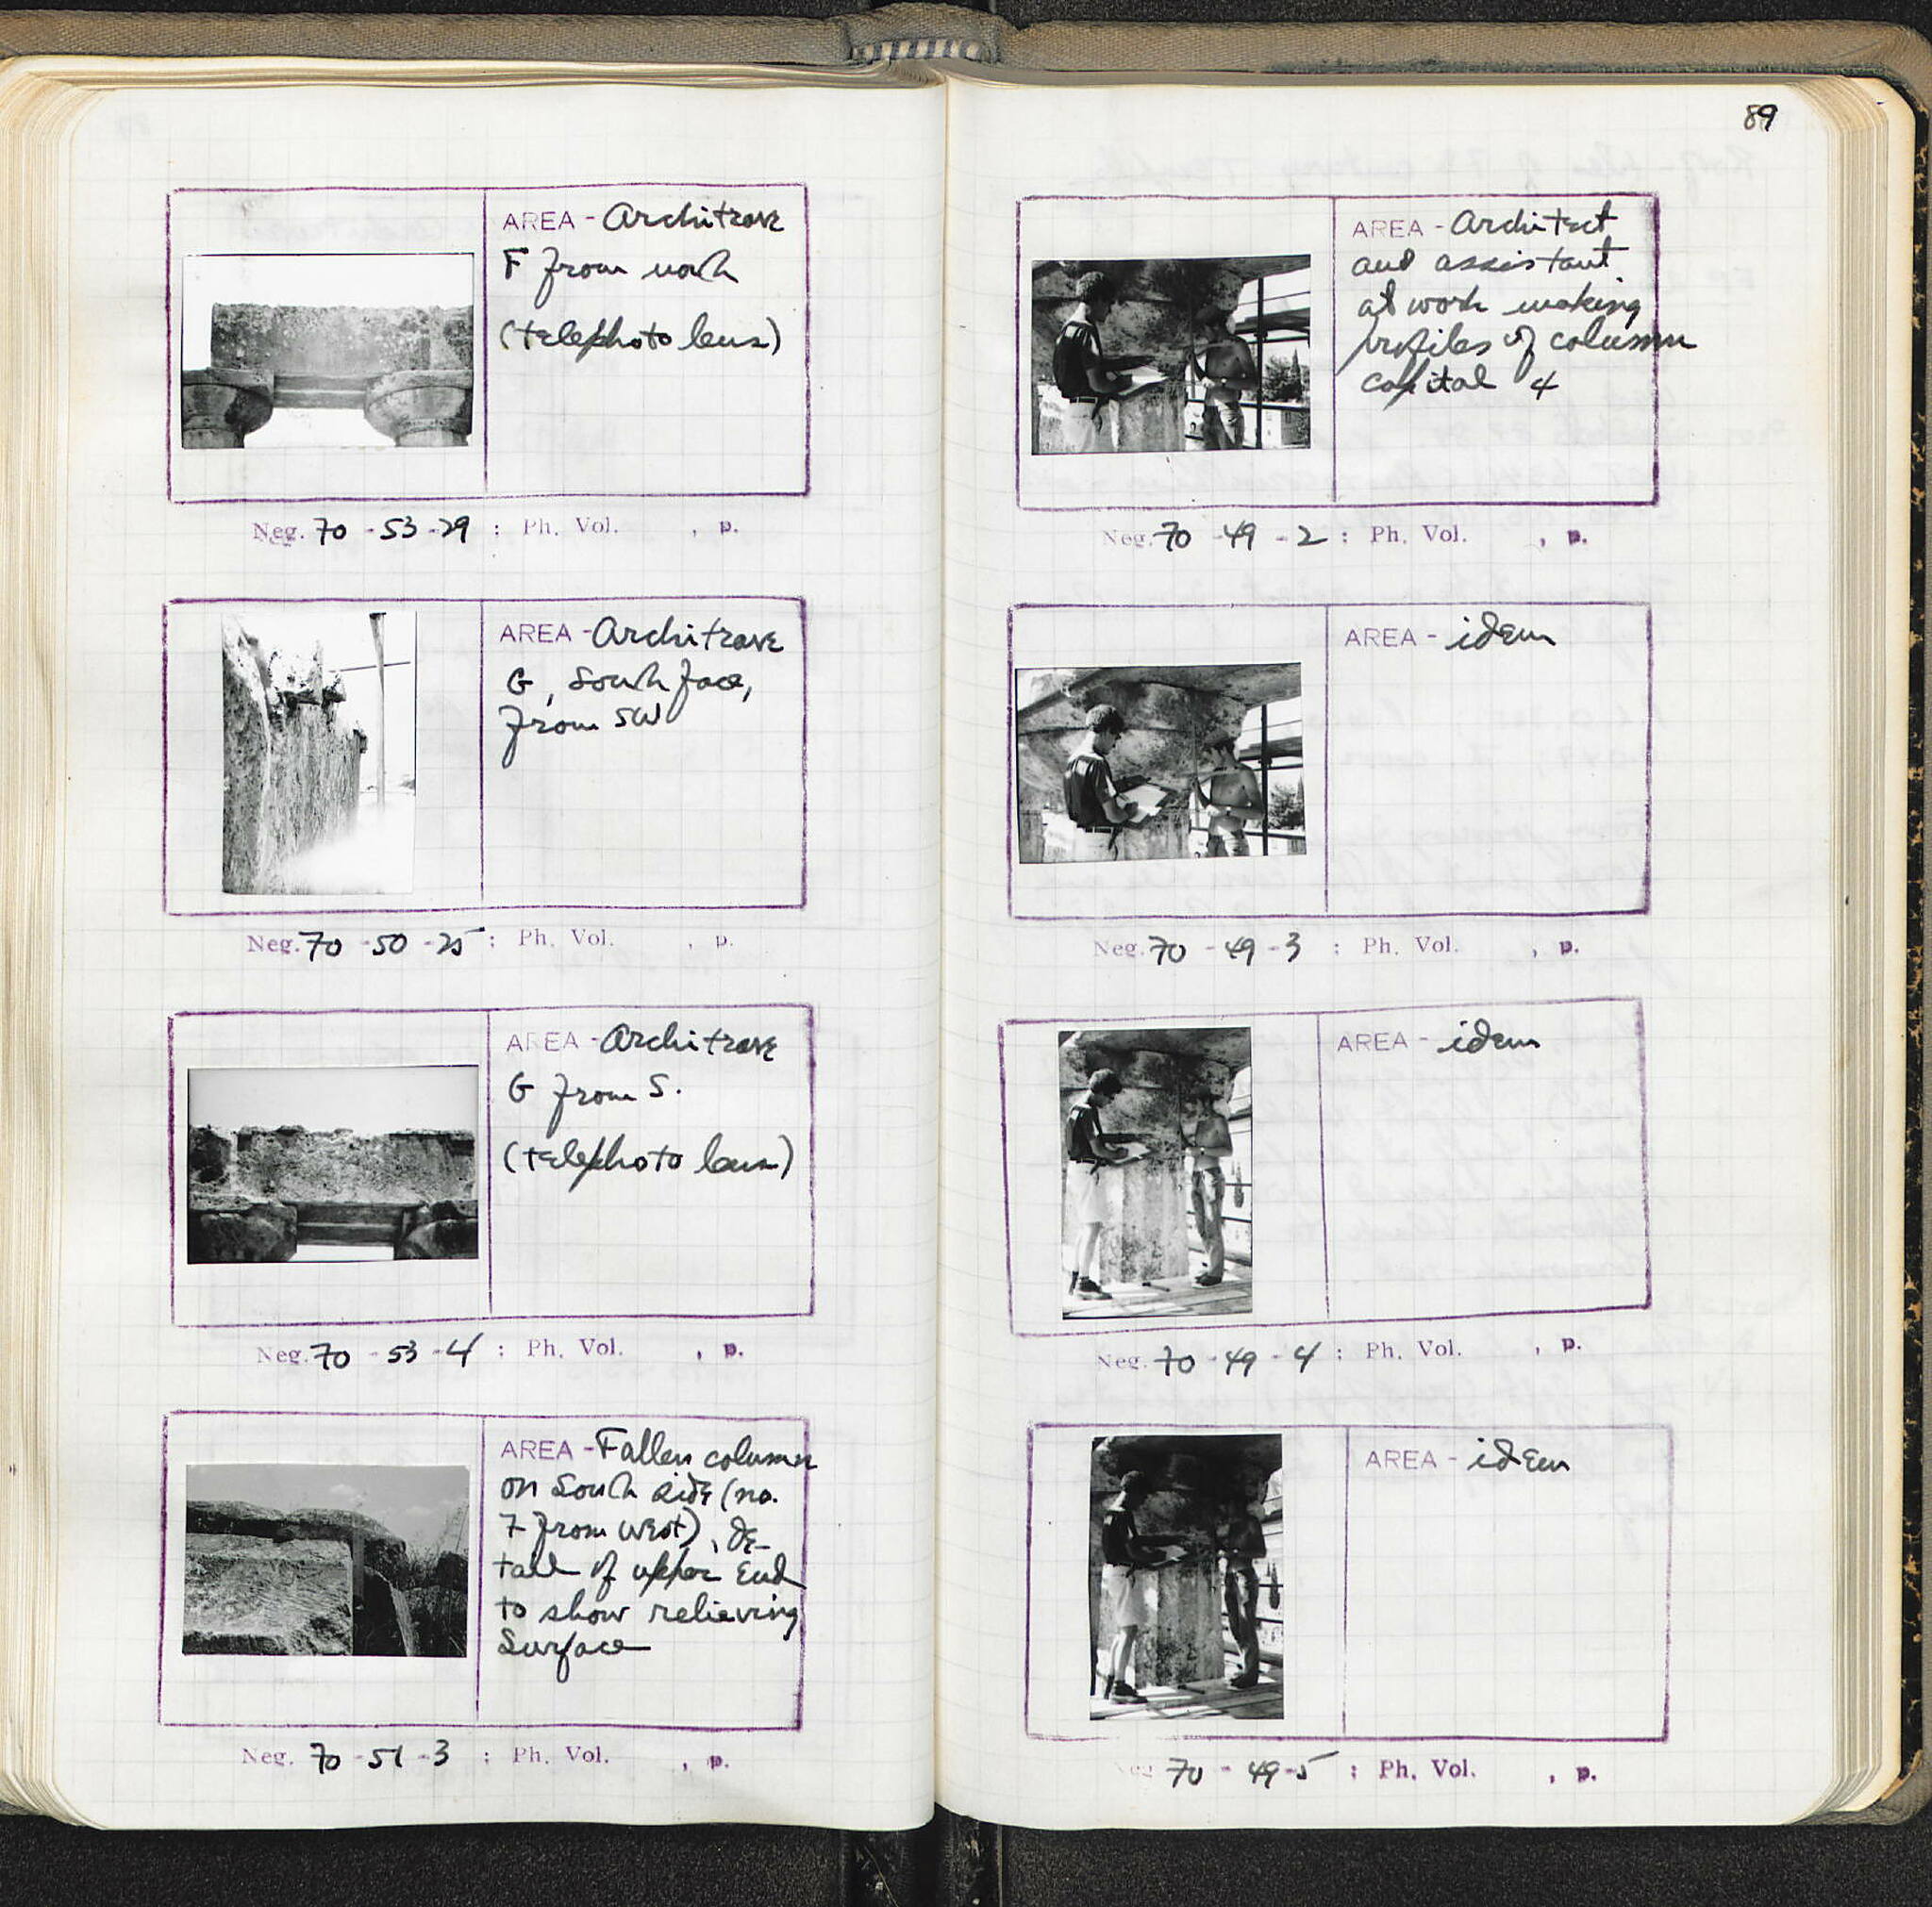 AREA - Architrave
F from north
(telephoto lens)
Neg. 70 - 53 - 29 : Ph. Vol. , p.
AREA - Architrave
G, South face,
from SW
Neg. 70 - 50 - 25 : Ph. Vol. , p.
AREA - Architrave
G from S.
(telephoto lens)
Neg. 70 - 53 - 4 : Ph. Vol. , p.
AREA - Fallen column
on South side (no.
7 from west), de-
tail of upper end
to show relieving
surface
Neg. 70 - 51 - 3 : Ph. Vol. , p.
89
AREA - Architect
and assistant
at work making
profiles of column
capital 4
Neg. 70 - 49 - 2 : Ph. Vol. , p.
AREA - idem
Neg. 70 - 49 - 3 : Ph. Vol. , p.
AREA - idem
Neg. 70 - 49 - 4 : Ph. Vol. , p.
AREA - idem
Neg 70 - 49 - 5 : Ph. Vol. , p.